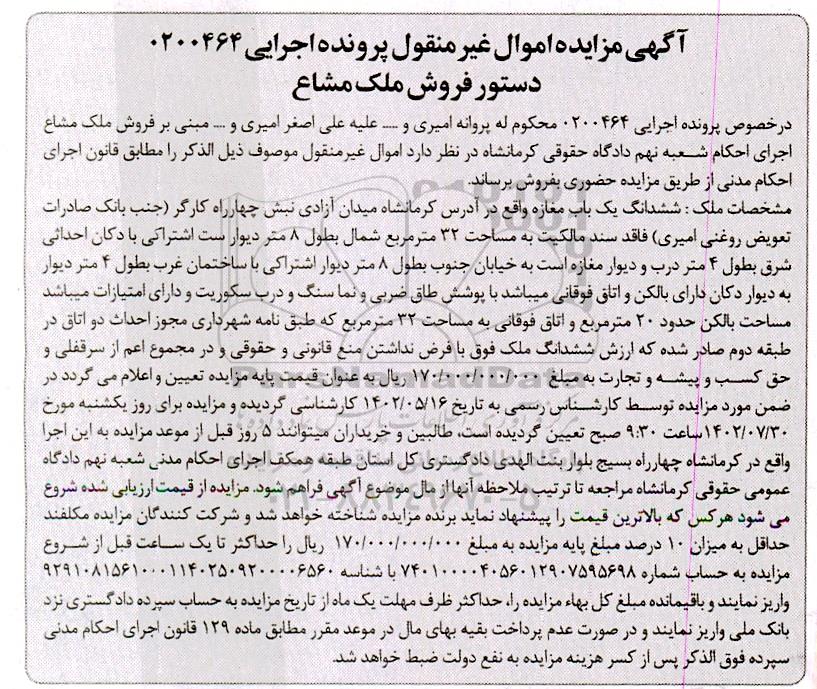 آگهی مزایده اموال غیرمنقول پرونده اجرایی ۰۲۰۰۴۶۴
دستور فروش ملک مشاع
درخصوص پرونده اجرایی ۰۲۰۰۴۶۴ محکوم له پروانه امیری و .... علیه علی اصغر امیری و .... مبنی بر فروش ملک مشاع
اجرای احکام شعبه نهم دادگاه حقوقی کرمانشاه در نظر دارد اموال غیرمنقول موصوف ذیل الذکر را مطابق قانون اجرای
احکام مدنی از طریق مزایده حضوری بفروش برساند.
مشخصات ملک : ششدانگ یک باب مغازه واقع در آدرس کرمانشاه میدان آزادی نبش چهارراه کارگر (جنب بانک صادرات
تعویض روغنی امیری) فاقد سند مالکیت به مساحت ۳۲ مترمربع شمال بطول ۸ متر دیوار ست اشتراکی با دکان احداثی
شرق بطول ۴ متر درب و دیوار مغازه است به خیابان جنوب بطول ۸ متر دیوار اشتراکی با ساختمان غرب بطول ۴ متر دیوار
به دیوار دکان دارای بالکن و اتاق فوقانی میباشد با پوشش طاق ضربی و نما سنگ و درب سکوریت و دارای امتیازات میباشد
مساحت بالکن حدود ۲۰ مترمربع و اتاق فوقانی به مساحت ۳۲ مترمربع که طبق نامه شهرداری مجوز احداث دو اتاق در
طبقه دوم صادر شده که ارزش ششدانگ ملک فوق با فرض نداشتن منع قانونی و حقوقی و در مجموع اعم از سرقفلی و
حق کسب و پیشه و تجارت به مبلغ ۱۷۰/۰۰۰/۰۰۰/۰۰۰ ریال به عنوان قیمت پایه مزایده تعیین و اعلام می گردد در
ضمن مورد مزایده توسط کارشناس رسمی به تاریخ ۱۴۰۲/۰۵/۱۶ کارشناسی گردیده و مزایده برای روز یکشنبه مورخ
۱۴۰۲/۰۷/۳۰ساعت ۹:۳۰ صبح تعیین گردیده است، طالبین و خریداران میتوانند ۵ روز قبل از موعد مزایده به این اجرا
واقع در کرمانشاه چهارراه بسیج بلوار بنت الهدی دادگستری کل استان طبقه همکف اجرای احکام مدنی شعبه نهم دادگاه
عمومی حقوقی کرمانشاه مراجعه تا ترتیب ملاحظه آنها از مال موضوع آگهی فراهم شود. مزایده از قیمت ارزیابی شده شروع
می شود هرکس که بالاترین قیمت را پیشنهاد نماید برنده مزایده شناخته خواهد شد و شرکت کنندگان مزایده مکلفند
حداقل به میزان ۱۰ درصد مبلغ پایه مزایده به مبلغ ۱۷۰/۰۰۰/۰۰۰/۰۰۰ ریال را حداکثر تا یک ساعت قبل از شروع
مزایده به حساب شماره ۷۴۰۱۰۰۰۰۴۰۵۶۰۱۲۹۰۷۵۹۵۶۹۸ با شناسه ۹۲۹۱۰۸۱۵۶۱۰۰۰۱۱۴۰۲۵۰۹۲۰۰۰۰۶۵۶۰
واریز نمایند و باقیمانده مبلغ کل بهاء مزایده را، حداکثر ظرف مهلت یک ماه از تاریخ مزایده به حساب سپرده دادگستری نزد
بانک ملی واریز نمایند و در صورت عدم پرداخت بقیه بهای مال در موعد مقرر مطابق ماده ۱۲۹ قانون اجرای احکام مدنی
سپرده فوق الذکر پس از کسر هزینه مزایده به نفع دولت ضبط خواهد شد.
ParsNamadData